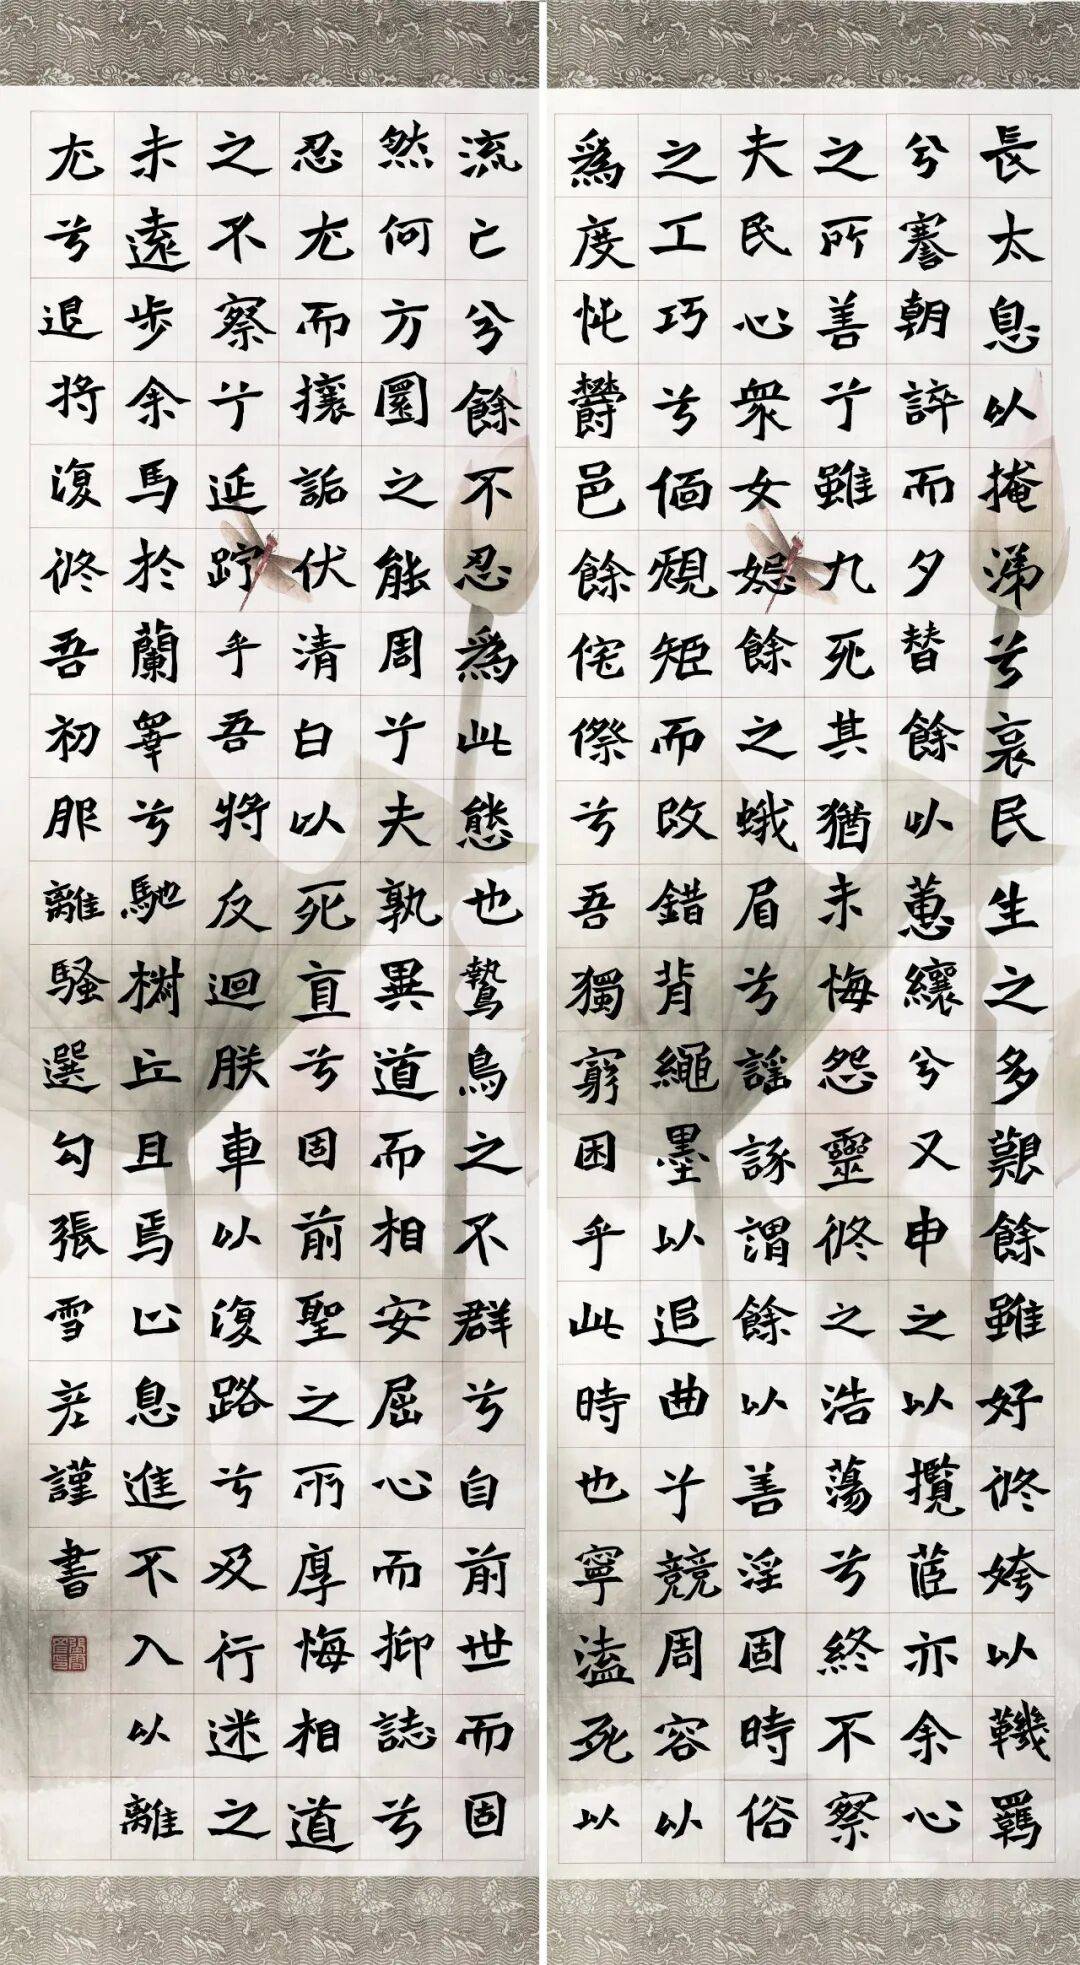 長太息以掩涕兮哀民生之多艱餘雖好修姱以鞿羈
兮謇朝誶而夕替餘以蕙纕兮又申之以攬茝亦余心
之所善兮雖九死其猶未悔怨靈修之浩蕩兮終不察
夫民心衆女嫉餘之蛾眉兮謠諑謂餘以善淫固時俗
之工巧兮偭規矩而改錯背繩墨以追曲兮競周容以
爲度忳鬱邑餘侘傺兮吾獨窮困乎此時也寧溘死以
流亡兮餘不忍爲此態也鷙鳥之不群兮自前世而固
然何方圜之能周兮夫孰異道而相安屈心而抑誌兮
忍尤而攘詬伏清白以死直兮固前聖之所厚悔相道
之不察兮延佇乎吾將反迴朕車以復路兮及行迷之
未遠步余馬於蘭皋兮馳椒丘且焉止息進不入以離
尤兮退將復修吾初服離騷選勾張雪謹書